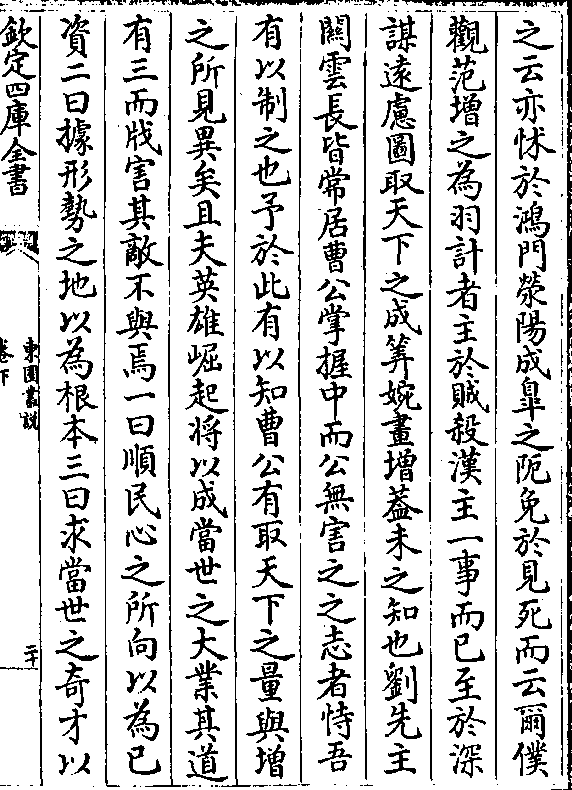 之云亦怵於鴻門滎陽成臯之阨免於見死而云爾僕
觀范增之為羽計者主於賊殺漢主一事而已至於深
謀遠慮圖取天下之成筭婉畫增葢未之知也劉先主
關雲長皆常居曹公掌握中而公無害之之志者恃吾
有以制之也予於此有以知曹公有取天下之量與增
之所見異矣且夫英雄崛起將以成當世之大業其道
有三而戕害其敵不與焉一曰順民心之所向以為已
資二曰據形勢之地以為根本三曰求當世之奇才以
欽定四庫全書
東園叢說
卷下
二十